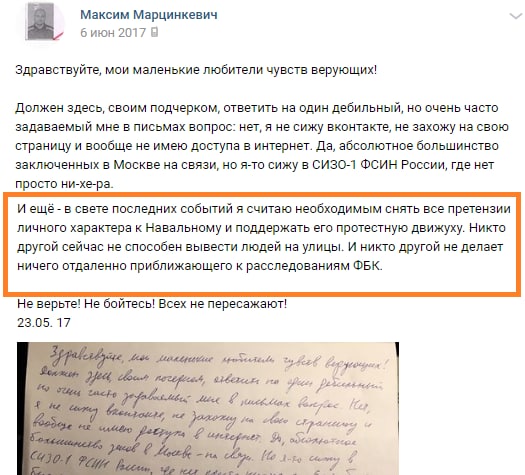 Максим Марцинкевич
6 июн 2017
Здравствуйте, мои маленькие любители чувств верующих!
Должен здесь, своим подчерком, ответить на один дебильный, но очень часто
задаваемый мне в письмах вопрос: нет, я не сижу вконтакте, не захожу на свою
страницу и вообще не имею доступа в интернет. Да, абсолютное большинство
заключенных в Москве на связи, но я-то сижу в СИЗО-1 ФСИН России, где нет
просто ни-хе-ра.
И ещё - в свете последних событий я считаю необходимым снять все претензии
личного характера к Навальному и поддержать его протестную движуху. Никто
другой сейчас не способен вывести людей на улицы. И никто другой не делает
ничего отдаленно приближающего к расследованиям ФБК.
Не верьте! Не бойтесь! Всех не пересажают!
23.05. 17
Здравствуйте, мои маленькие любители чувств верующих!
Должен здесь, своим почерком, ответить на один дебильный
но очень часто задаваемый мне в письмах вопрос. Нет,
я не сижу вконтакте, не захожу на свою страницу и
вообще не имею доступа в интернет. Да, абсолютное
большинство зэков в Москве - на связи. Но я-то сижу в
СИЗО-1 ФСИН России, где нет